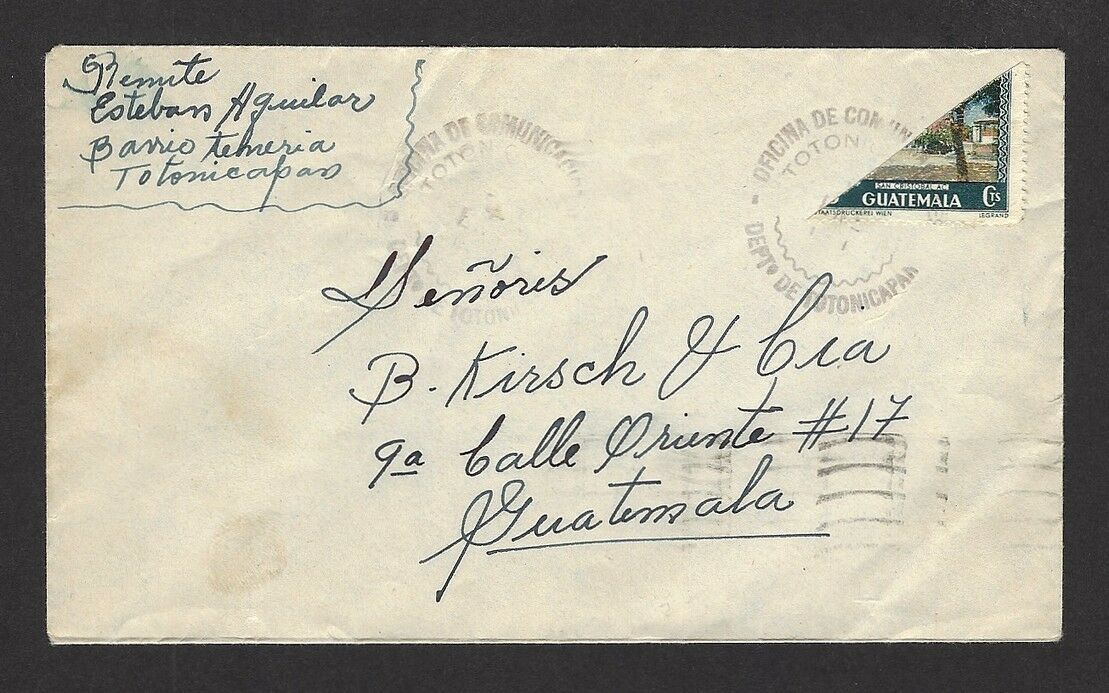 Remite
Esteban Aguilar
Barrio temeria
Totonicapan
OFICINA DE COMUNICACION
TOTON
TOTON
OFICINA DE COMUN
TOTON
DEPTO DE TOTONICAPAN
SAN CRISTOBAL AC
GUATEMALA CTS
STAATSDRUCKEREI WIEN LEGRAND
Señores
B. Kirsch & Cia
9a Calle Oriente #17
Guatemala